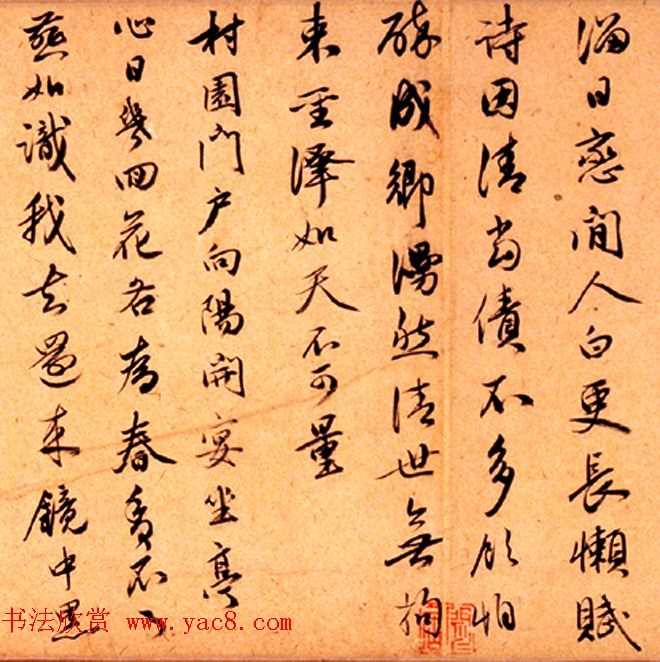 日窓間人白更長懶賦
詩因清當債不多飲怕
醉成鄉漫然清世無拘
束聖澤如天不可量
村園門戶向陽開宴坐亭
心日幾回花各為春香不
燕如識我去還來鏡中黑
书法欣赏 www.yac8.com